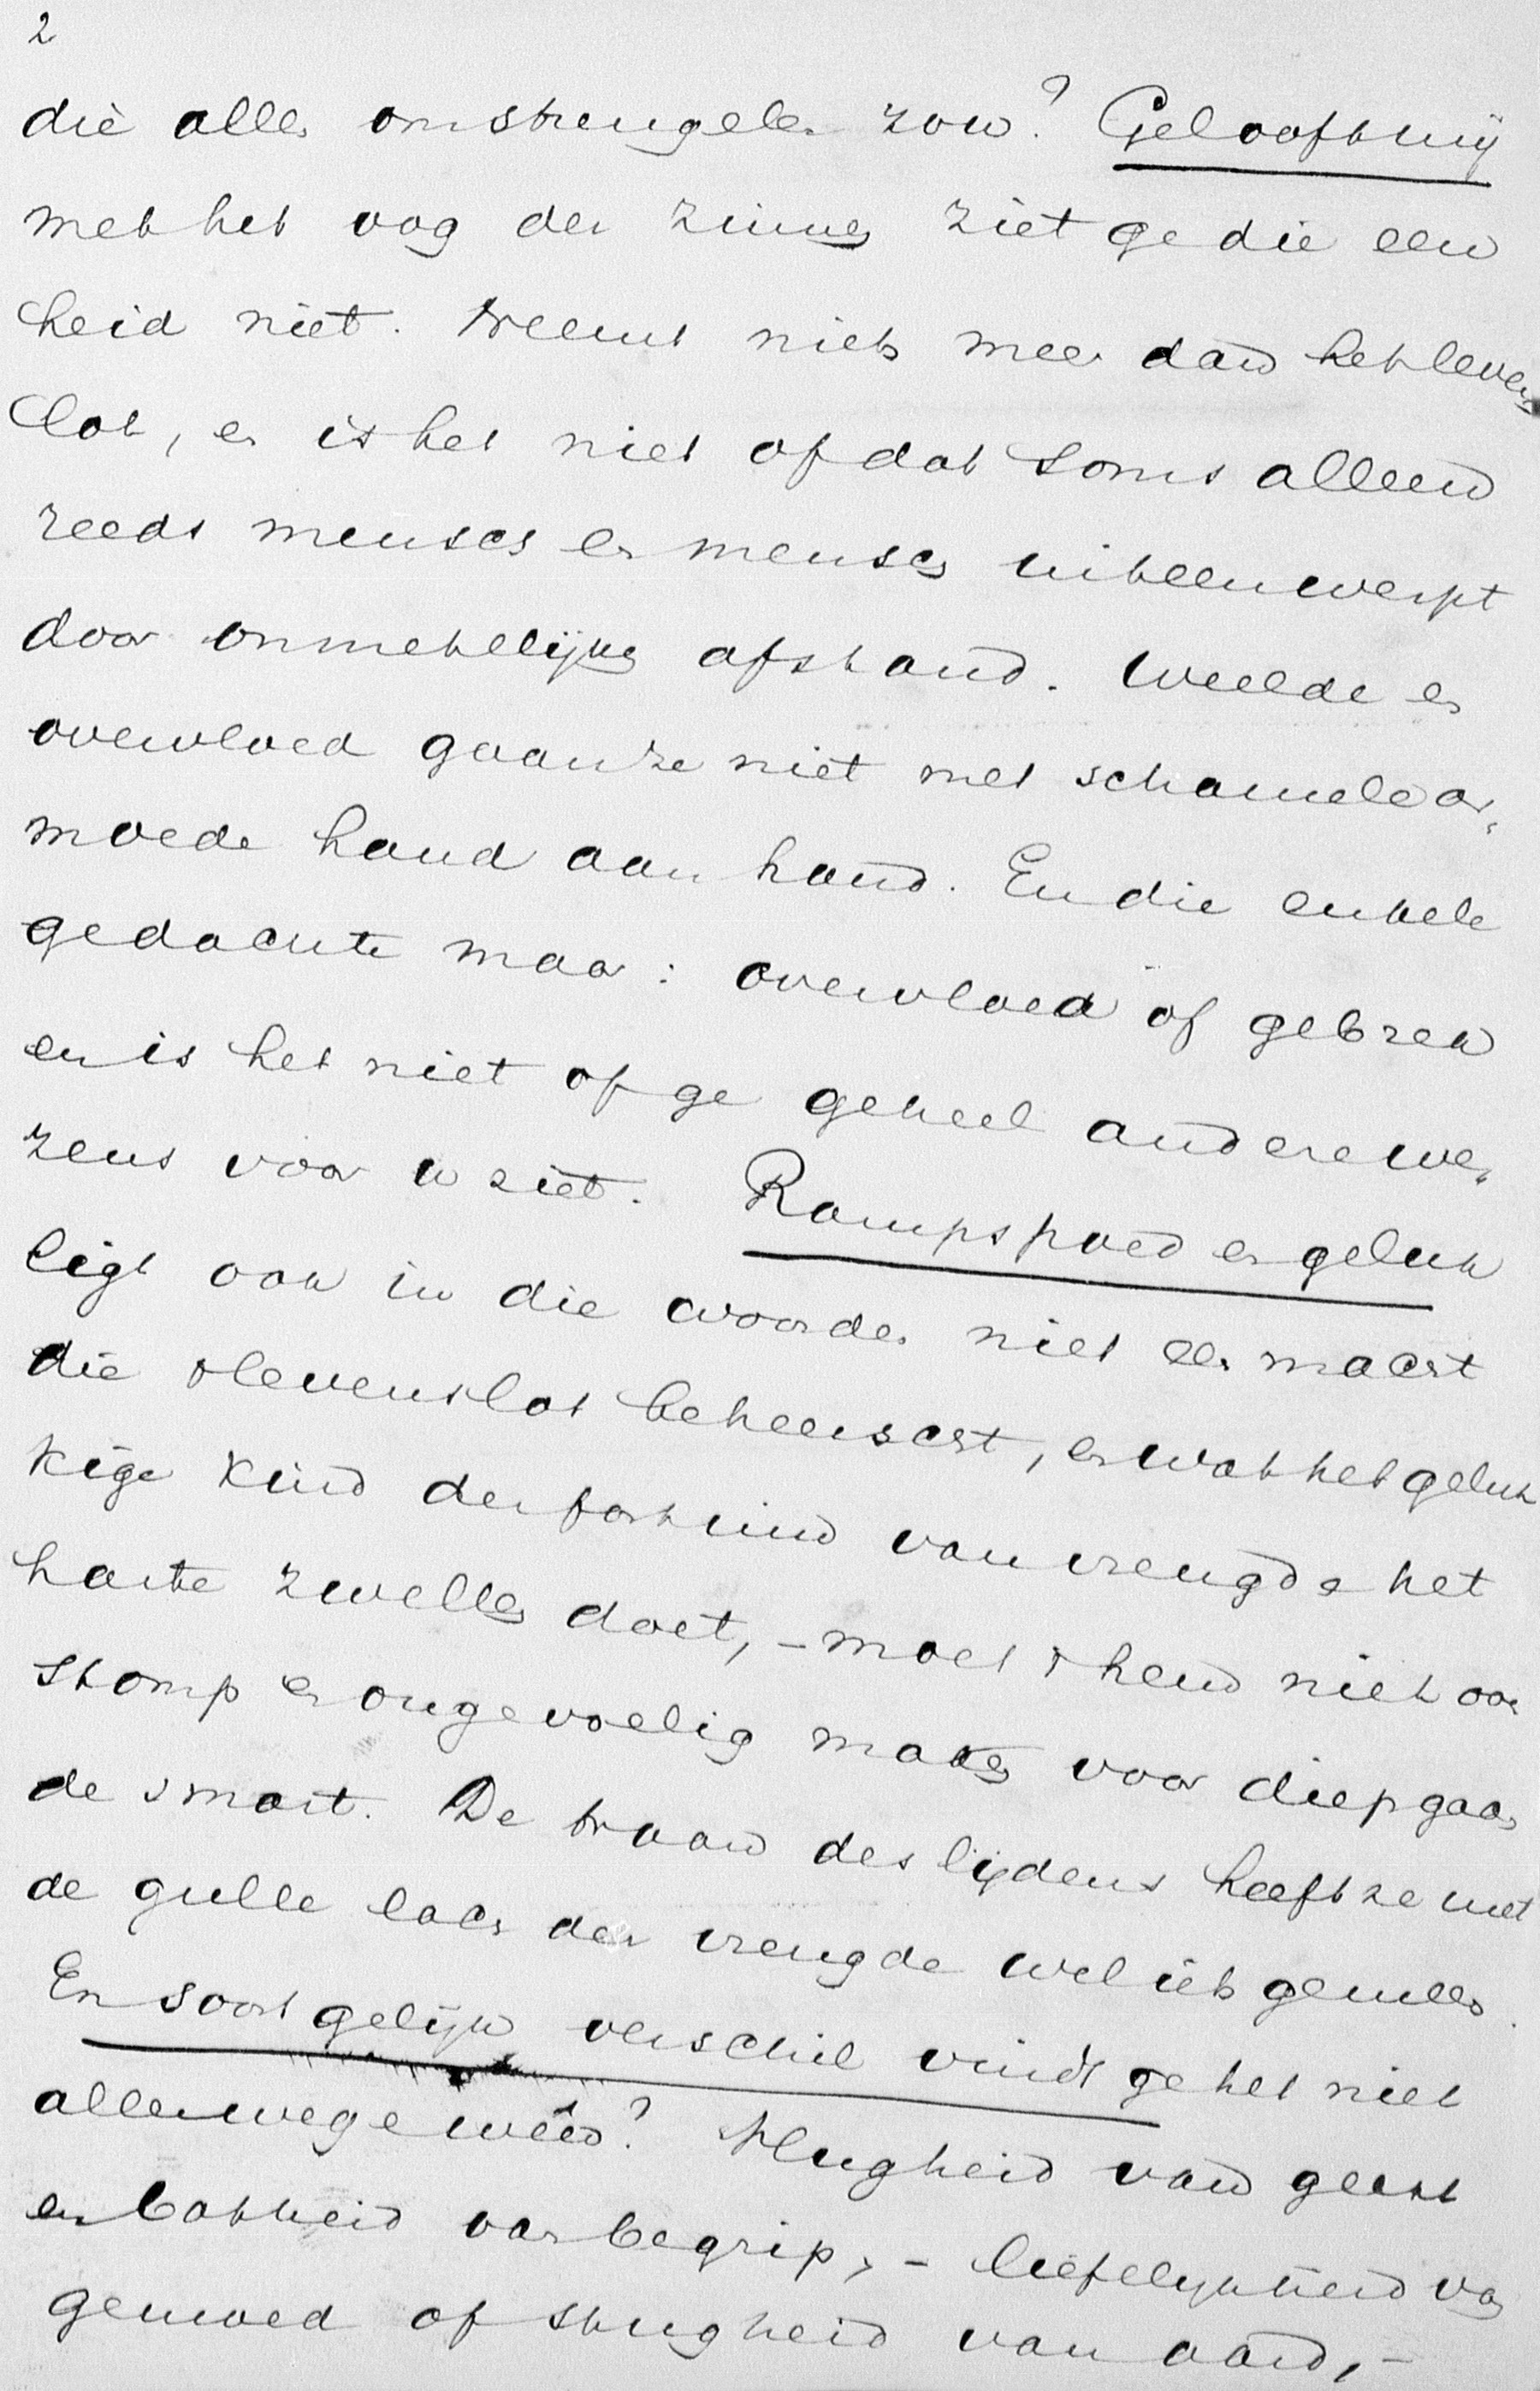 2
die alles omstrengelen zou? Gelooft mij
met het oog der zinnen ziet ge die een
heid niet. Neemt niets meer dan het levens
lot, en is het niet of dat soms alleen
reeds mensch en menschen uiteenwerpt
door onmetelijken afstand. Weelde en
overvloed gaan ze niet met schamele ar„
moede hand aan hand. En die enkele
gedachte maar: overvloed of gebrek
en is het niet of ge geheel andere we„
zens voor u ziet. Rampspoed en geluk
ligt ook in die woorden niet een macht
die 't levenslot beheerscht, en wat het geluk
kige kind der fortuin van vreugde het
harte zwellen doet, – moet 't hem niet ook
stomp en ongevoelig maken voor diepgaan
de smart. De traan des lijdens heeft ze met
de gulle lach der vreugde wel iets gemeen.
En soortgelijk verschil vindt ge het niet
allerwege weêr? Vlugheid van geest
en botheid van begrip, – liefelijkheid van
gemoed of stugheid van aard, –